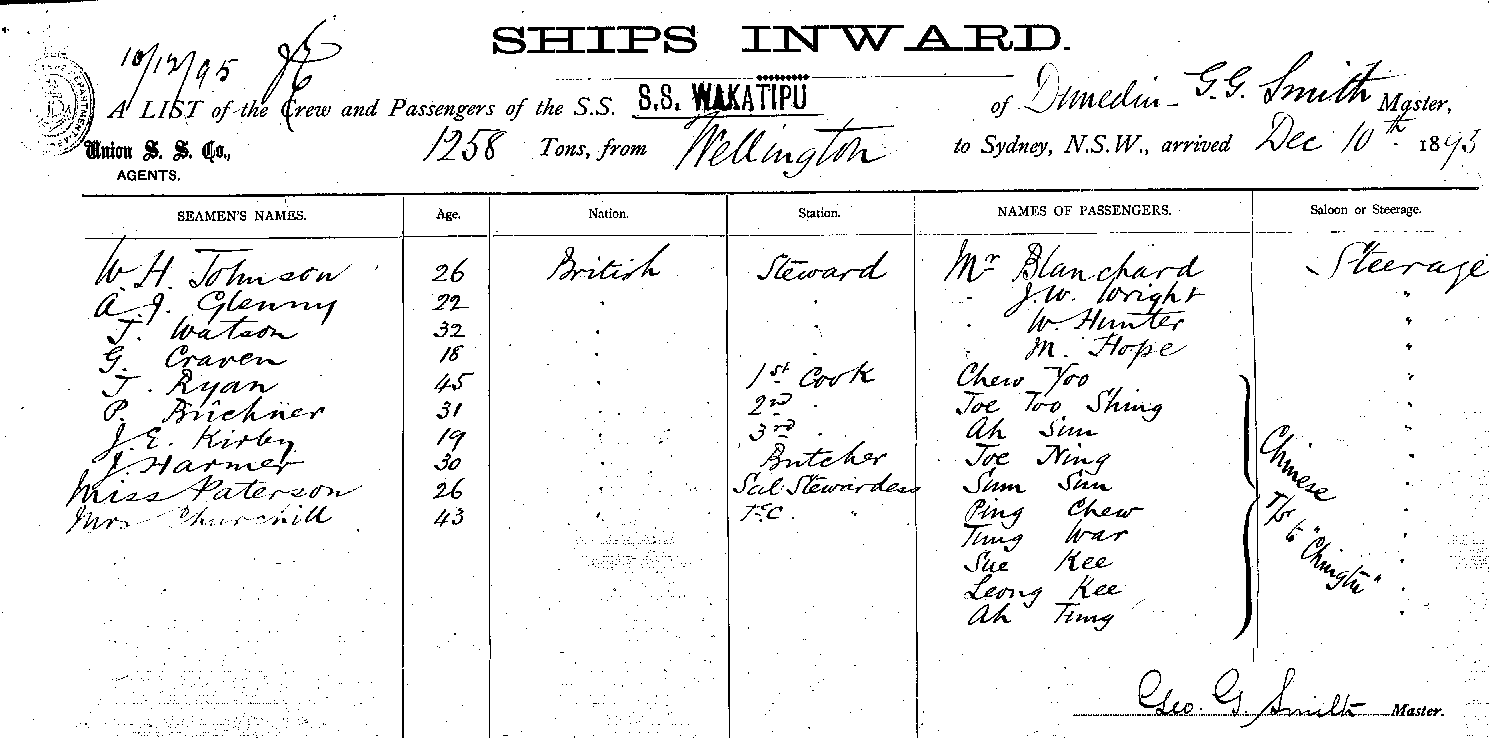 SHIPS INWARD.
10/12/95
A LIST of the Crew and Passengers of the S.S. S.S. WAKATIPU of Dunedin - G.G. Smith Master,
Union S. S. Co., 1258 Tons, from Wellington to Sydney, N.S.W., arrived Dec 10th 1893
AGENTS.
SEAMEN'S NAMES. Age. Nation. Station. NAMES OF PASSENGERS. Saloon or Steerage.
W. H. Johnson 26 British Steward Mr Blanchard Steerage
A. J. Glenny 22 . . . J. W. Wright "
T. Watson 32 . . . W. Hunter "
G. Craven 18 . . M. Hope "
T. Ryan 45 . 1st Cook Chew Yoo "
P. Buchner 31 . 2nd . Joe Too Shing "
J. E. Kirby 19 . 3rd . Ah Sun "
J. Harmer 30 . Butcher Joe Ning "
Miss Paterson 26 . Sal Stewardess Sum Sun "
Mrs Churchill 43 . " Ping Chew "
Tung War "
Sue Kee "
Leong Kee "
Ah Tung "
Chinese
T/s to "Chingtu"
Geo. G. Smith Master.